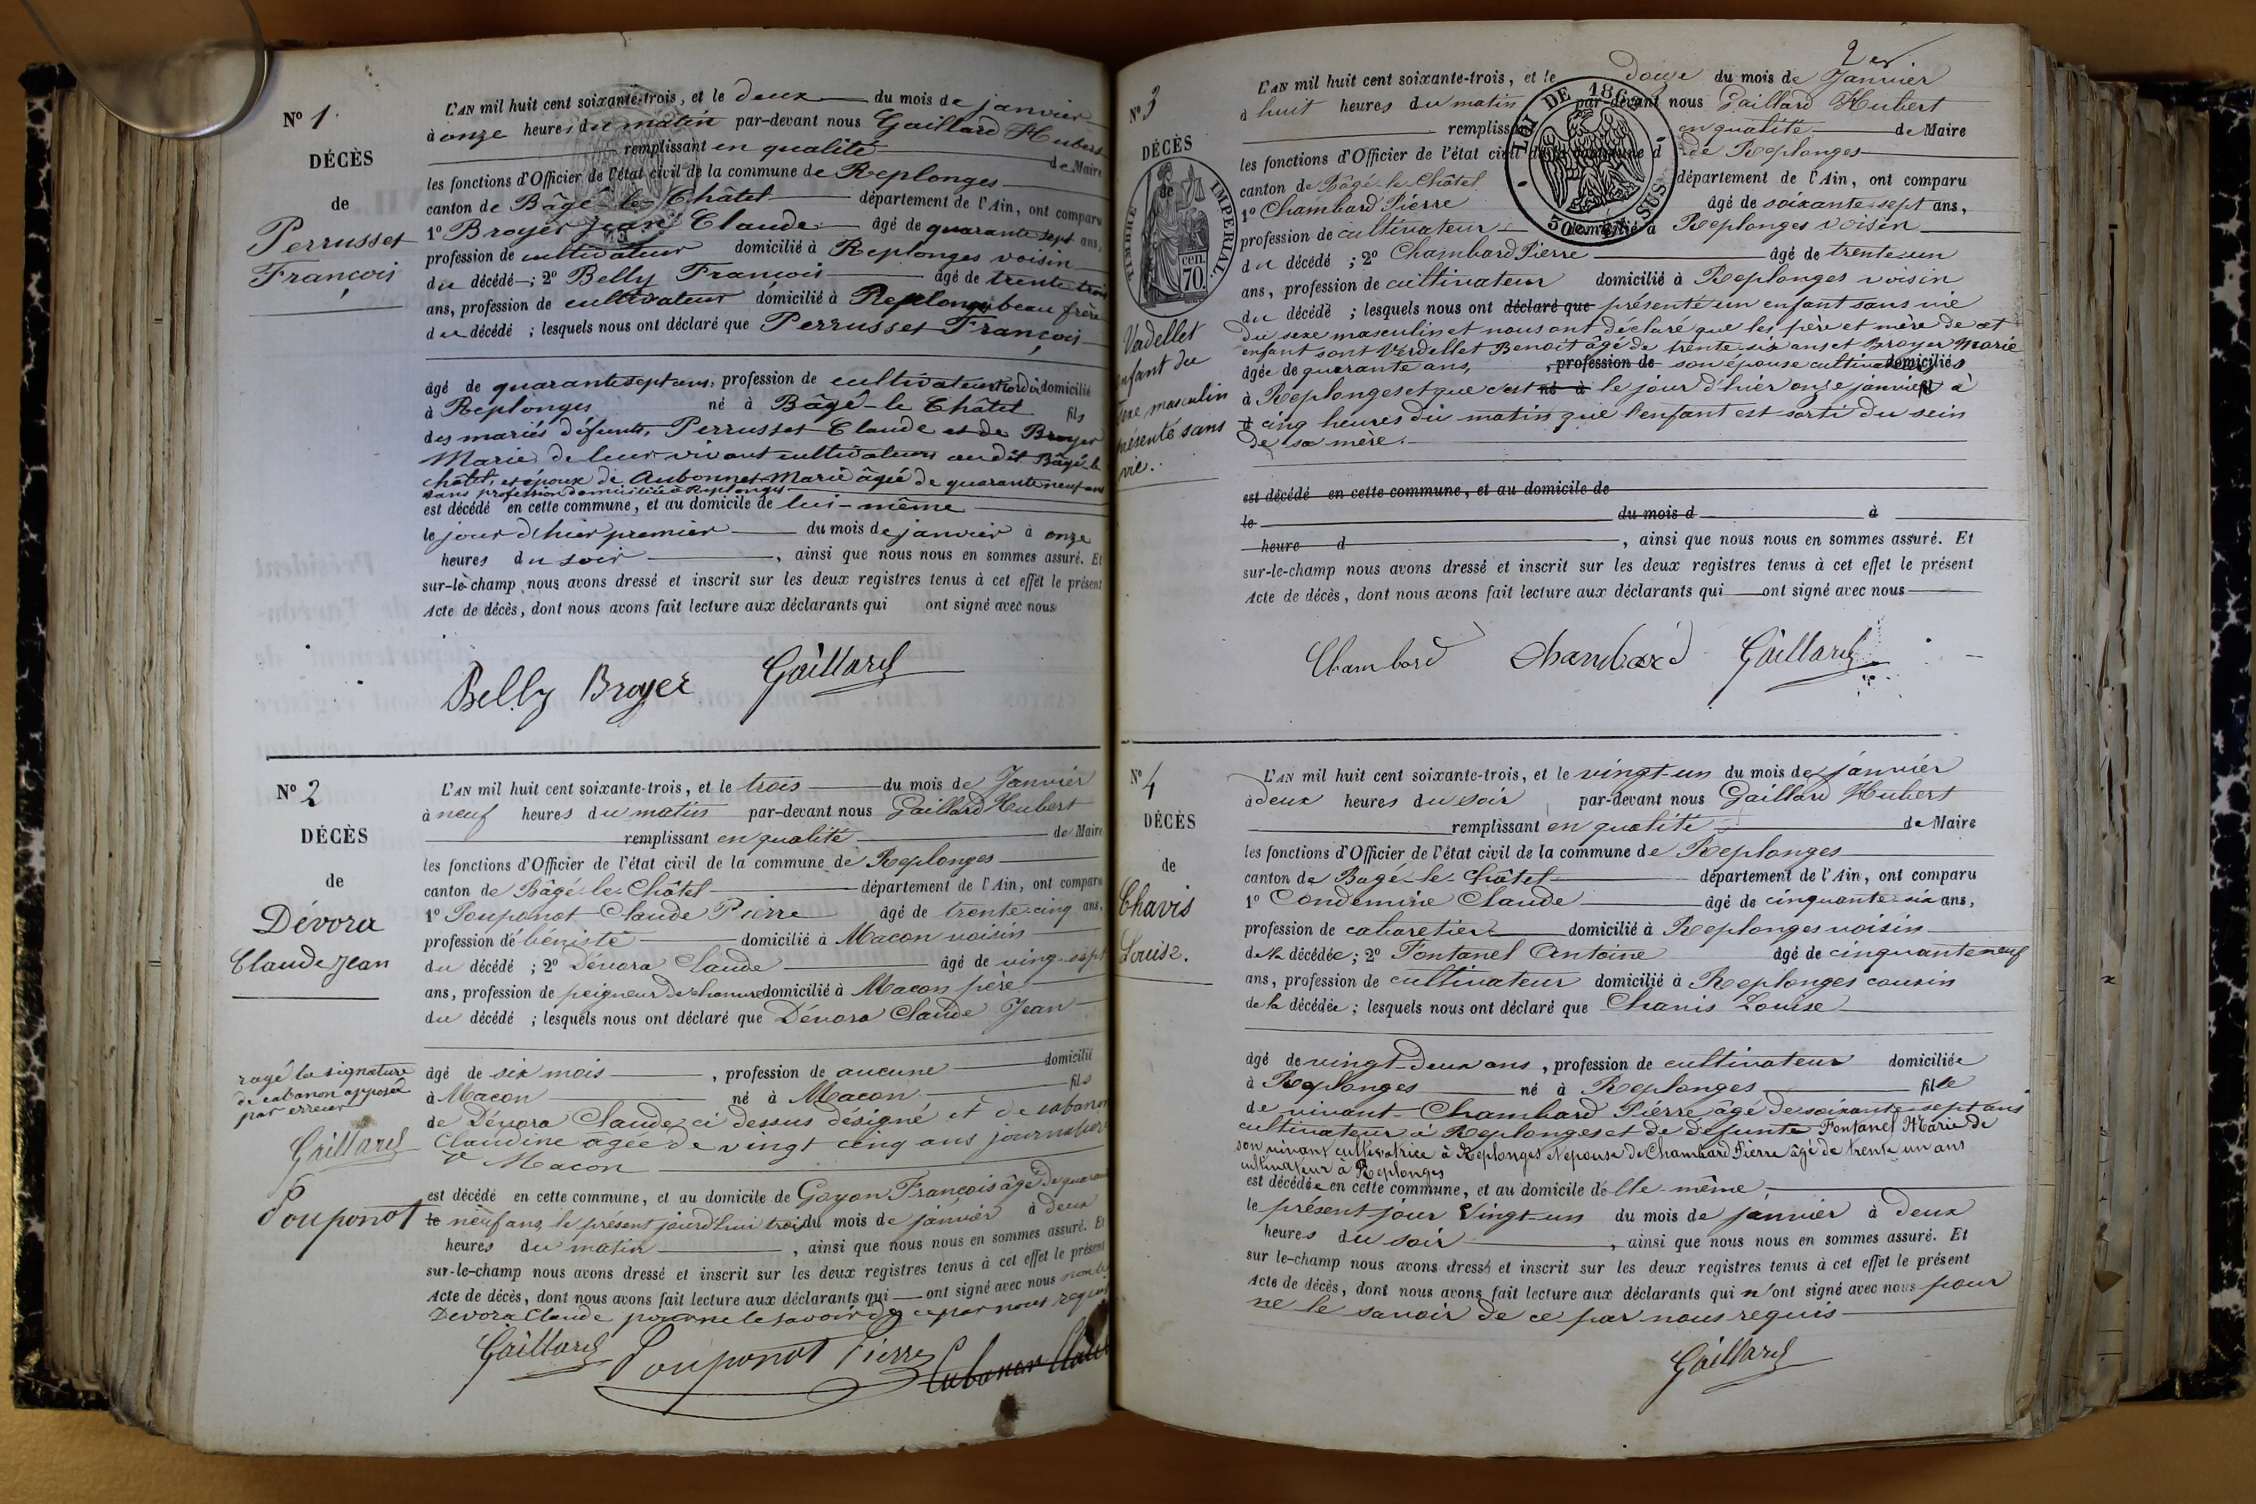 Nº 1
DÉCÈS
de
Perrusset
François
L'AN mil huit cent soixante-trois, et le deux du mois de janvier
à onze heures du matin par-devant nous Gaillard Hubert
remplissant en qualité de Maire
les fonctions d'Officier de l'état civil de la commune de Replonges
canton de Bâgé-le-Châtel département de l'Ain, ont comparu
1º Broyer Jean Claude âgé de quarante sept ans,
profession de cultivateur domicilié à Replonges voisin
du décédé ; 2º Belly François âgé de trente trois
ans, profession de cultivateur domicilié à Replonges beau frère
du décédé ; lesquels nous ont déclaré que Perrusset François
âgé de quarante sept ans, profession de cultivateur domicilié
à Replonges né à Bâgé-le Châtel fils
des mariés défunts, Perrusset Claude et de Broyer
Marie de leur vivant cultivateurs au dit Bâgé le
châtel, et époux de Aubonnet Marie âgée de quarante neuf ans
sans profession domiciliée à Replonges
est décédé en cette commune, et au domicile de lui-même
le jour d'hier premier du mois de janvier à onze
heures du soir, ainsi que nous nous en sommes assuré. Et
sur-le-champ nous avons dressé et inscrit sur les deux registres tenus à cet effet le présent
Acte de décès, dont nous avons fait lecture aux déclarants qui ont signé avec nous
Belly Broyer Gaillard
Nº 2
DÉCÈS
de
Dévora
Claude Jean
L'AN mil huit cent soixante-trois, et le trois du mois de Janvier
à neuf heures du matin par-devant nous Gaillard Hubert
remplissant en qualité de Maire
les fonctions d'Officier de l'état civil de la commune de Replonges
canton de Bâgé-le-Châtel département de l'Ain, ont comparu
1º Pouponot Claude Pierre âgé de trente-cinq ans,
profession de béniste domicilié à Macon voisin
du décédé ; 2º Dévora Claude âgé de ving-sept
ans, profession de peigneur de chanvre domicilié à Macon père
du décédé ; lesquels nous ont déclaré que Dévora Claude Jean
âgé de six mois, profession de aucune domicilié
à Macon né à Macon fils
de Dévora Claude ci dessus désigné et de Cabanon
Claudine agée de vingt cinq ans journalière
à Macon
est décédé en cette commune, et au domicile de Goyon François âgé de quarante
le neuf ans, le présent jourd'hui trois du mois de janvier à deux
heures du matin, ainsi que nous nous en sommes assuré. Et
sur-le-champ nous avons dressé et inscrit sur les deux registres tenus à cet effet le présent
Acte de décès, dont nous avons fait lecture aux déclarants qui ont signé avec nous non le
Devora Claude pour ne le savoir de ce par nous requis
rayé la signature
de cabanon apposée
par erreur
Gaillard
Pouponot
Gaillard Pouponot Pierre Cabanon
2
Nº 3
DÉCÈS
de
TIMBRE IMPÉRIAL
70 cen.
LOI DE 1862
50C EN SUS
Verdellet
enfant du
sexe masculin
présenté sans
vie.
L'AN mil huit cent soixante-trois, et le douze du mois de Janvier
à huit heures du matin par-devant nous Gaillard Hubert
remplissant en qualité de Maire
les fonctions d'Officier de l'état civil de la commune d de Replonges
canton de Bâgé-le-Châtel département de l'Ain, ont comparu
1º Chambard Pierre âgé de soixante-sept ans,
profession de cultivateur domicilié à Replonges voisin
du décédé ; 2º Chambard Pierre âgé de trente-un
ans, profession de cultivateur domicilié à Replonges voisin
du décédé ; lesquels nous ont déclaré que présenté un enfant sans vie
du sexe masculin et nous ont déclaré que les père et mère de cet
enfant sont Verdellet Benoit âgé de trente-six ans et Broyer Marie
âgée de quarante ans, profession de son épouse cultivateurs domiciliés
à Replonges et que c'est né à le jour d'hier onze janvier fil à
d cinq heures du matin que l'enfant est sorti du sein
de sa mère.
est décédé en cette commune, et au domicile de
le du mois d à
heure d, ainsi que nous nous en sommes assuré. Et
sur-le-champ nous avons dressé et inscrit sur les deux registres tenus à cet effet le présent
Acte de décès, dont nous avons fait lecture aux déclarants qui ont signé avec nous
Chambard Chambard Gaillard
Nº 4
DÉCÈS
de
Chavis
Louise.
L'AN mil huit cent soixante-trois, et le vingt-un du mois de janvier
à deux heures du soir par-devant nous Gaillard Hubert
remplissant en qualité de Maire
les fonctions d'Officier de l'état civil de la commune de Replonges
canton de Bagé-le-Châtel département de l'Ain, ont comparu
1º Condemine Claude âgé de cinquante-six ans,
profession de cabaretier domicilié à Replonges voisin
de la décédée ; 2º Fontanel Antoine âgé de cinquante neuf
ans, profession de cultivateur domicilié à Replonges cousin
de la décédée ; lesquels nous ont déclaré que Chavis Louise
âgé de vingt-deux ans, profession de cultivateur domiciliée
à Replonges né à Replonges fille
de vivant Chambard Pierre âgé de soixante-sept ans
cultivateur à Replonges et de défunte Fontanel Marie de
son vivant cultivatrice à Replonges et épouse de Chambard Pierre âgé de trente un ans
cultivateur à Replonges
est décédée en cette commune, et au domicile d'elle-même,
le présent jour vingt-un du mois de janvier à deux
heures du soir, ainsi que nous nous en sommes assuré. Et
sur le-champ nous avons dressé et inscrit sur les deux registres tenus à cet effet le présent
Acte de décès, dont nous avons fait lecture aux déclarants qui n'ont signé avec nous pour
ne le savoir de ce par nous requis
Gaillard